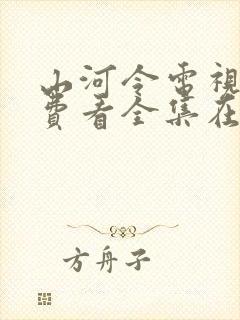 山河令電視
費看全集在
方舟子